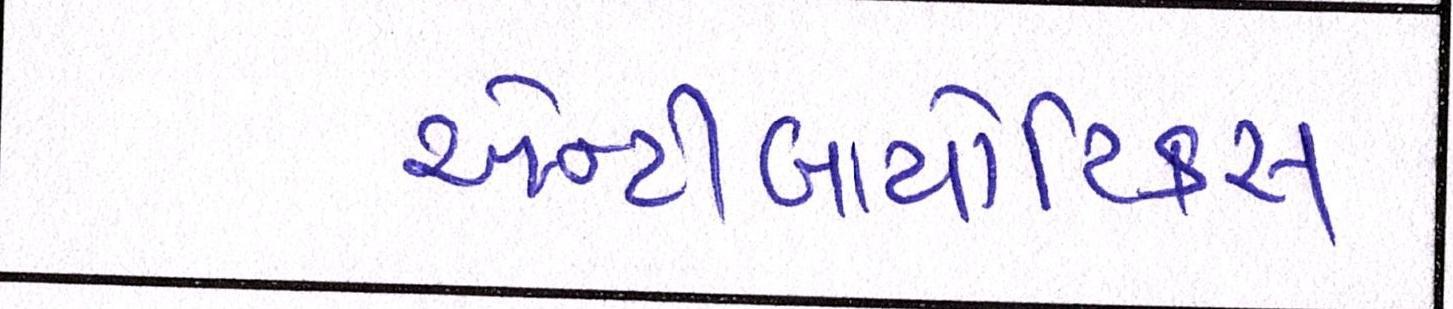 એન્ટીબાયોટિકસ